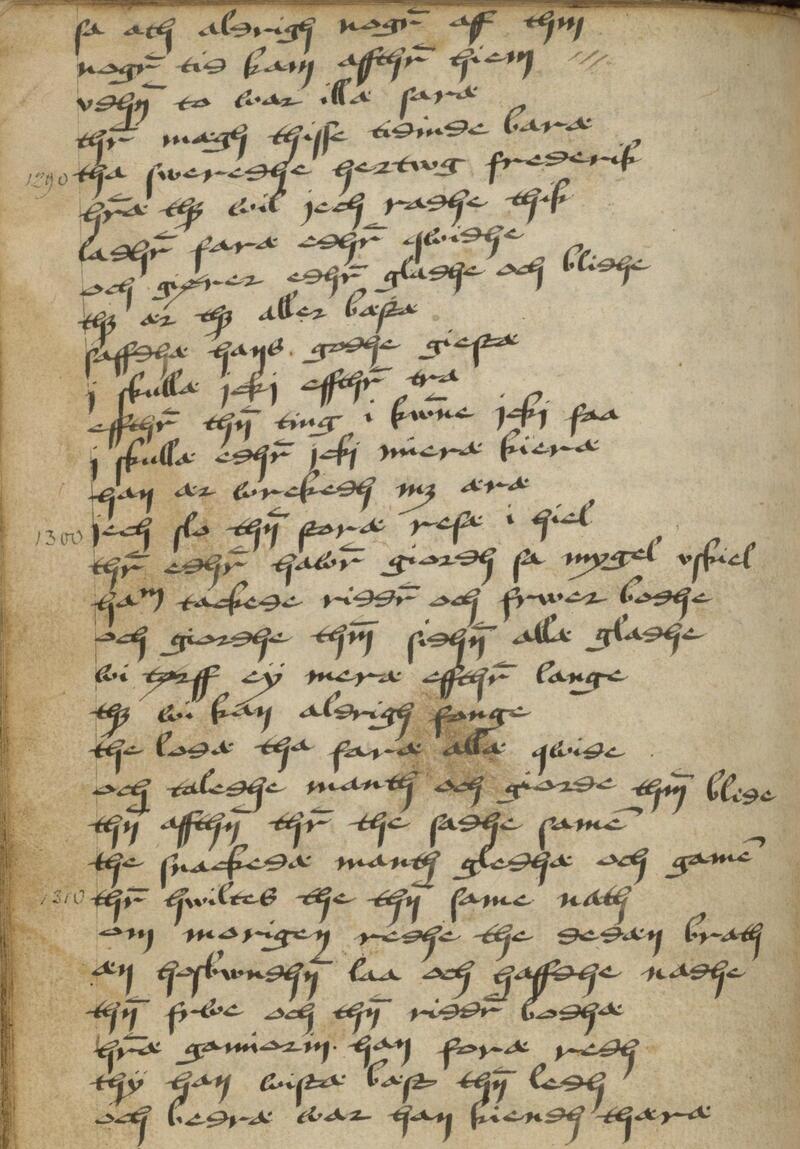 sa ath aldrigh nogr̄ aff thm̄
nogr̄ tid kam affthr̄ hiem
vdhn̄ to war illæ saræ
thr̄ mægh thisse tidinde baræ
1290 tha sweredhe hertwg frederik
hr̄æ thꝫ wil jech radhe thik
ladhr̄ faræ edhr̄ qwidhe
och giører edhr̄ gladhe och blidhe
thꝫ ær thꝫ aller bæstæ
saffdhæ hans godhe giestæ
j skullæ jckj effthr̄ tra
effthr̄ thn̄ ting i kwn̄e jckj faa
j skullæ edhr̄ jckj mieræ kieræ
han ær wrekedh mꝫ æræ
1300 jech slo thn̄ storæ resæ i hiel
thr̄ edhr̄ hawr̄ giordh sa mygel vskiel
ham tackede riddr̄ och frwer bodhe
och giordhe thm̄ sidhn̄ allæ gladhe
wi tørff ey meræ effthr̄ lange
thꝫ wi kan aldrigh fange
the lodæ tha faræ allæ qwide
och taledhe manth och giorde thm̄ blide
thn̄ affthn̄ thr̄ the sadhe samē
the snackedæ manth gledhæ och gamē
1310 thr̄ hwiltes the thn̄ same nath
om morigen redhe the dedæn brath
æn hosbwndhn̄ laa och haffdhe nadhe
thn̄ frwe och thn̄ riddr̄ bodhæ
hr̄æ gamiorin han foræ redh
thy han wistæ bæst thn̄ ledh
och bedræ war han kiendh thæræ